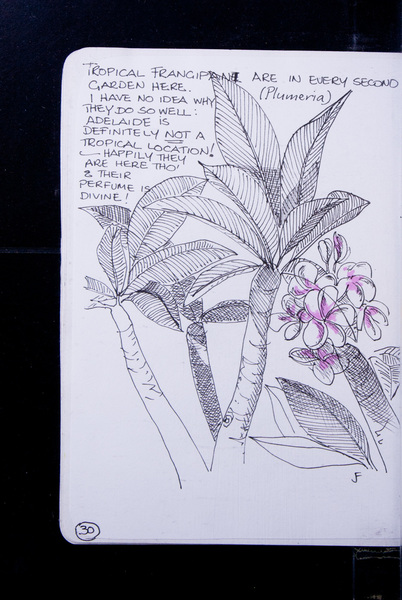 TROPICAL FRANGIPANI ARE IN EVERY SECOND
GARDEN HERE. (Plumeria)
I HAVE NO IDEA WHY
THEY DO SO WELL:
ADELAIDE IS
DEFINITELY NOT A
TROPICAL LOCATION!
- HAPPILY THEY
ARE HERE THO'
& THEIR
PERFUME IS
DIVINE!
JF
30